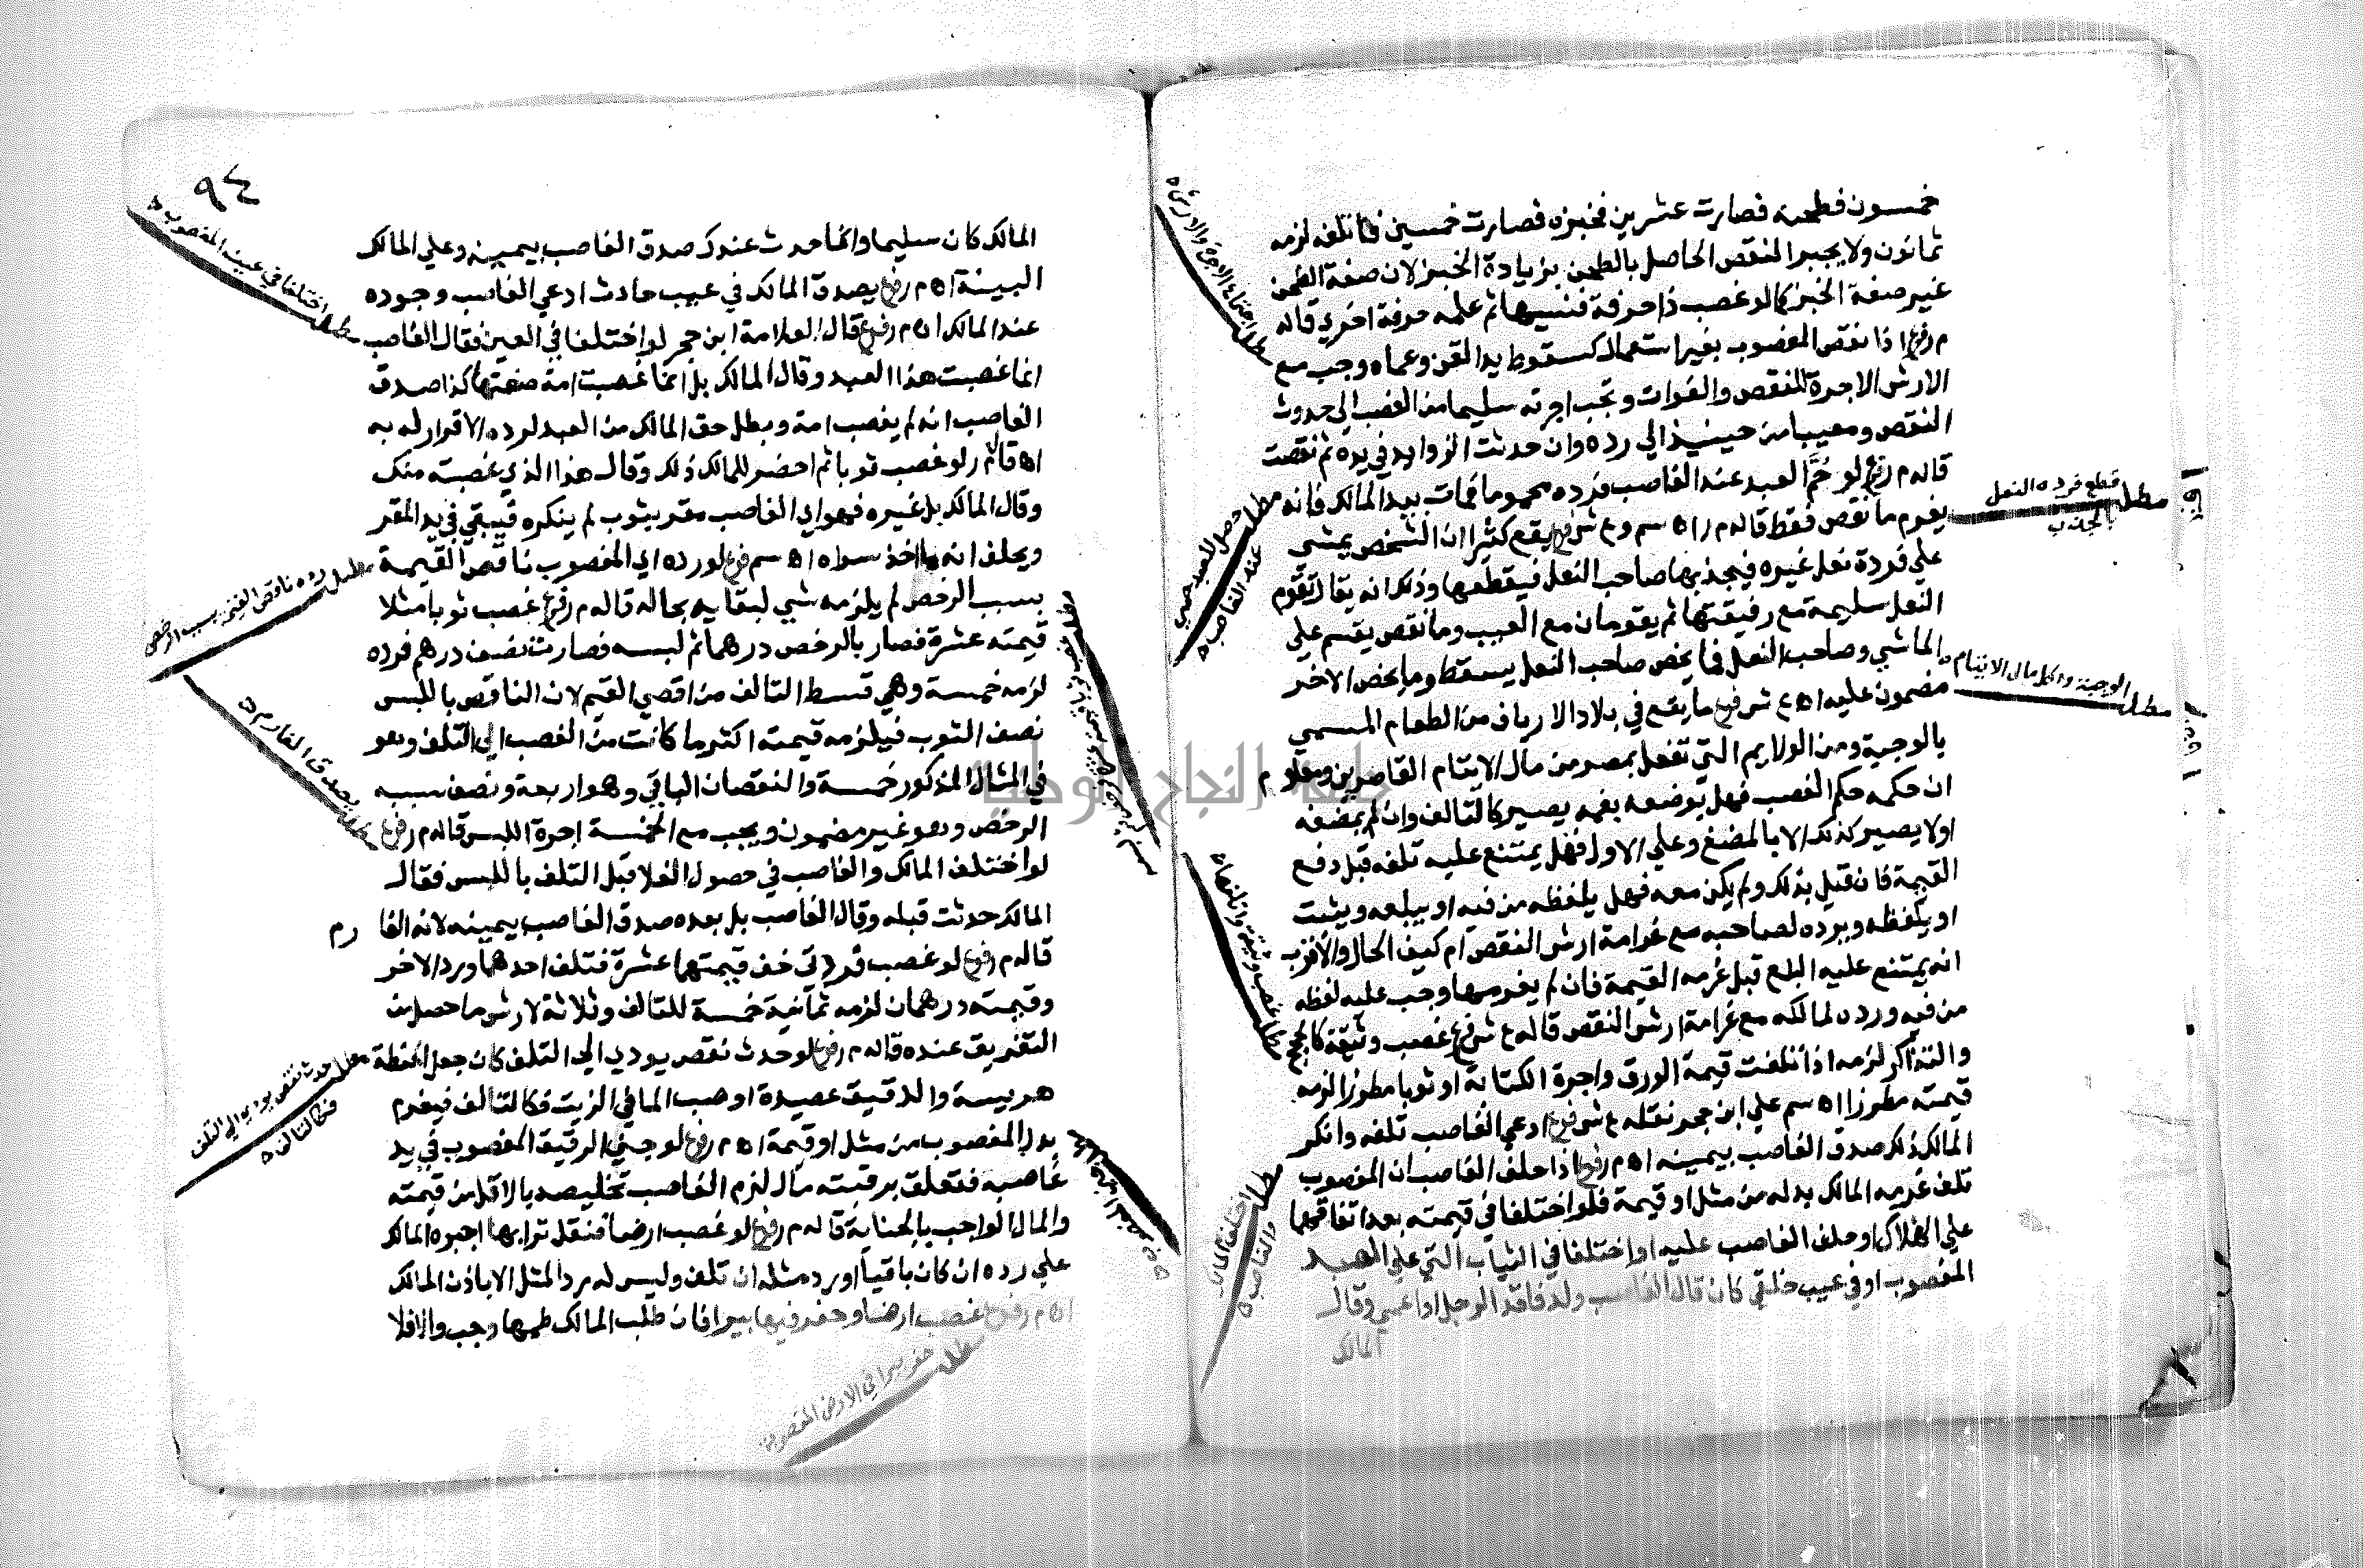 خمسون فطحنه فصارت عشرين فخبزه فصارت خمسين فاتلفه لزمه
ثمانون ولا يجبر النقص الحاصل بالطحن بزيادة الخبز لان صفة الطحن
غير صفة الخبز كما لو غصب ذا حرفة فنسيها ثم علمه حرفة اخري قاله
م ر فرع اذا نقص المغصوب بغير استعمال كسقوط يد القن وعماه وجب مع
الارش الاجرة للنقص والفوات وتجب اجرته سليما من الغصب الي حدوث
النقص ومعيبا من حينئذ الي رده وان حدثت الزوايد في يده ثم نقصت
قاله م ر فرع لو حُمَّ العبد عند الغاصب فرده محموما فمات بيد المالك فانه
يغرم ما نقص فقط قاله م ر اه سم و ع ش فرع يقع كثيرا ان الشخص يمشي
علي فردة نعل غيره فيجذبها صاحب النعل فيقطعها وذلك انه يقال تقوم
النعل سليمة مع رفيقتها ثم يقومان مع العيب وما نقص يقسم علي
الماشي وصاحب النعل فما يخص صاحب النعل يسقط وما يخص الاخر
مضمون عليه اه ع ش فرع ما يقع في بلاد الارياف من الطعام المسمي
بالوجبة ومن الولايم التي تفعل بمصر من مال الايتام القاصرين ومعلوم
ان حكمه حكم الغصب فهل بوضعه بفمه يصير كالتالف وان لم يمضغه
اولا يصير كذلك الا بالمضغ وعلي الاول فهل يمتنع عليه تلفه قبل دفع
القيمة فان قيل بذلك ولم يكن معه فهل يلفظه من فيه او يبلعه ويثبت
او يلفظه ويرده لصاحبه مع غرامة ارش النقص ام كيف الحال والاقرب
انه يمتنع عليه البلع قبل غرمه القيمة فان لم يغرمها وجب عليه لفظه
من فيه ورده لمالكه مع غرامة ارش النقص قاله ع ش فرع غصب وثيقة كالحجج
والتذاكر لزمه اذا تلفت قيمة الورق واجرة الكتابة او ثوبا مطرزا لزمه
قيمته مطرزا اه سم علي ابن حجر نقله ع ش فرع ادعي الغاصب تلفه وانكر
المالك ذلك صدق الغاصب بيمينه اه م ر فرع اذا حلف الغاصب ان المغصوب
تلف غرمه المالك بدله من مثل او قيمة فلو اختلفا في قيمته بعد اتفاقهما
علي الهلاك او حلف الغاصب عليه او اختلفا في الثياب التي علي العبد
المغصوب او في عيب خلقي كان قال الغاصب ولد فاقد الرجل او اعمي وقال
المالك
مطلب اجتماع الاجرة والارش
مطلب حصل للعبد
عند الغاصب
مطلب قطع فردة النعل
بالجذب
مطلب الوجبة واكل مال الايتام
مطلب غصب وثيقة واتلفها
مطلب اختلف المالك
والغاصب
٩٤
المالك كان سليما وانما حدث عندك صدق الغاصب بيمينه وعلي المالك
البينة اه م ر فرع يصدق المالك في عيب حادث ادعي الغاصب وجوده
عند المالك اه م ر فرع قال العلامة ابن حجر لو اختلفا في العين فقال الغاصب
انما غصبت هذا العبد وقال المالك بل انما غصبت امة صفتها كذا صدق
الغاصب انه لم يغصب امة وبطل حق المالك من العبد لرده الاقرار له به
اه قال م ر لو غصب ثوبا ثم احضر للمالك ذلك وقال هذا الذي غصبته منك
وقال المالك بل غيره فهو اي الغاصب مقر بثوب لم ينكره فيبقي في يد المقر
ويحلف انه ما اخذ سواه اه سم فرع لو رده اي المغصوب ناقص القيمة
بسبب الرخص لم يلزمه شي لبقايه بحاله قاله م ر فرع غصب ثوبا مثلا
قيمته عشرة فصار بالرخص درهما ثم لبسه فصارت نصف درهم فرده
لزمه خمسة وهي قسط التالف من اقصي القيم لان الناقص باللبس
نصف الثوب فيلزمه قيمته اكثر ما كانت من الغصب الي التلف وهو
في المثال المذكور خمسة والنقصان الباقي وهو اربعة ونصف سببه
الرخص وهو غير مضمون ويجب مع الخمسة اجرة اللبس قاله م ر فرع
لو اختلف المالك والغاصب في حصول الغلا قبل التلف باللبس فقال
المالك حدثت قبله وقال الغاصب بل بعده صدق الغاصب بيمينه لانه الغارم
قاله م ر فرع لو غصب فردتي خف قيمتهما عشرة فتلف احدهما ورد الاخر
وقيمته درهمان لزمه ثمانية خمسة للتالف وثلاثة لارش ما حصل من
التفريق عنده قاله م ر فرع لو حدث نقص يودي الي التلف كان جعل الحنطة
هريسة والدقيق عصيدة او صب الما في الزيت فكالتالف فيغرم
بدل المغصوب من مثل او قيمة اه م ر فرع لو جني الرقيق المغصوب في يد
غاصبه فتعلق برقبته مال لزم الغاصب تخليصه بالاقل من قيمته
والمال الواجب بالجناية قاله م ر فرع لو غصب ارضا فنقل ترابها اجبره المالك
علي رده ان كان باقيا او رد مثله ان تلف وليس له رد المثل الا باذن المالك
اه م ر فرع غصب ارضا وحفر فيها بيرا فان طلب المالك طمها وجب والا فلا
مطلب اختلفا في عيب المغصوب
مطلب رده ناقص القيمة بسبب الرخص
مطلب يصدق الغارم
مطلب حدث نقص يودي الي التلف
فكالتالف
مطلب حفر بيرا في الارض المغصوبة
جامعة النجاح الوطنية